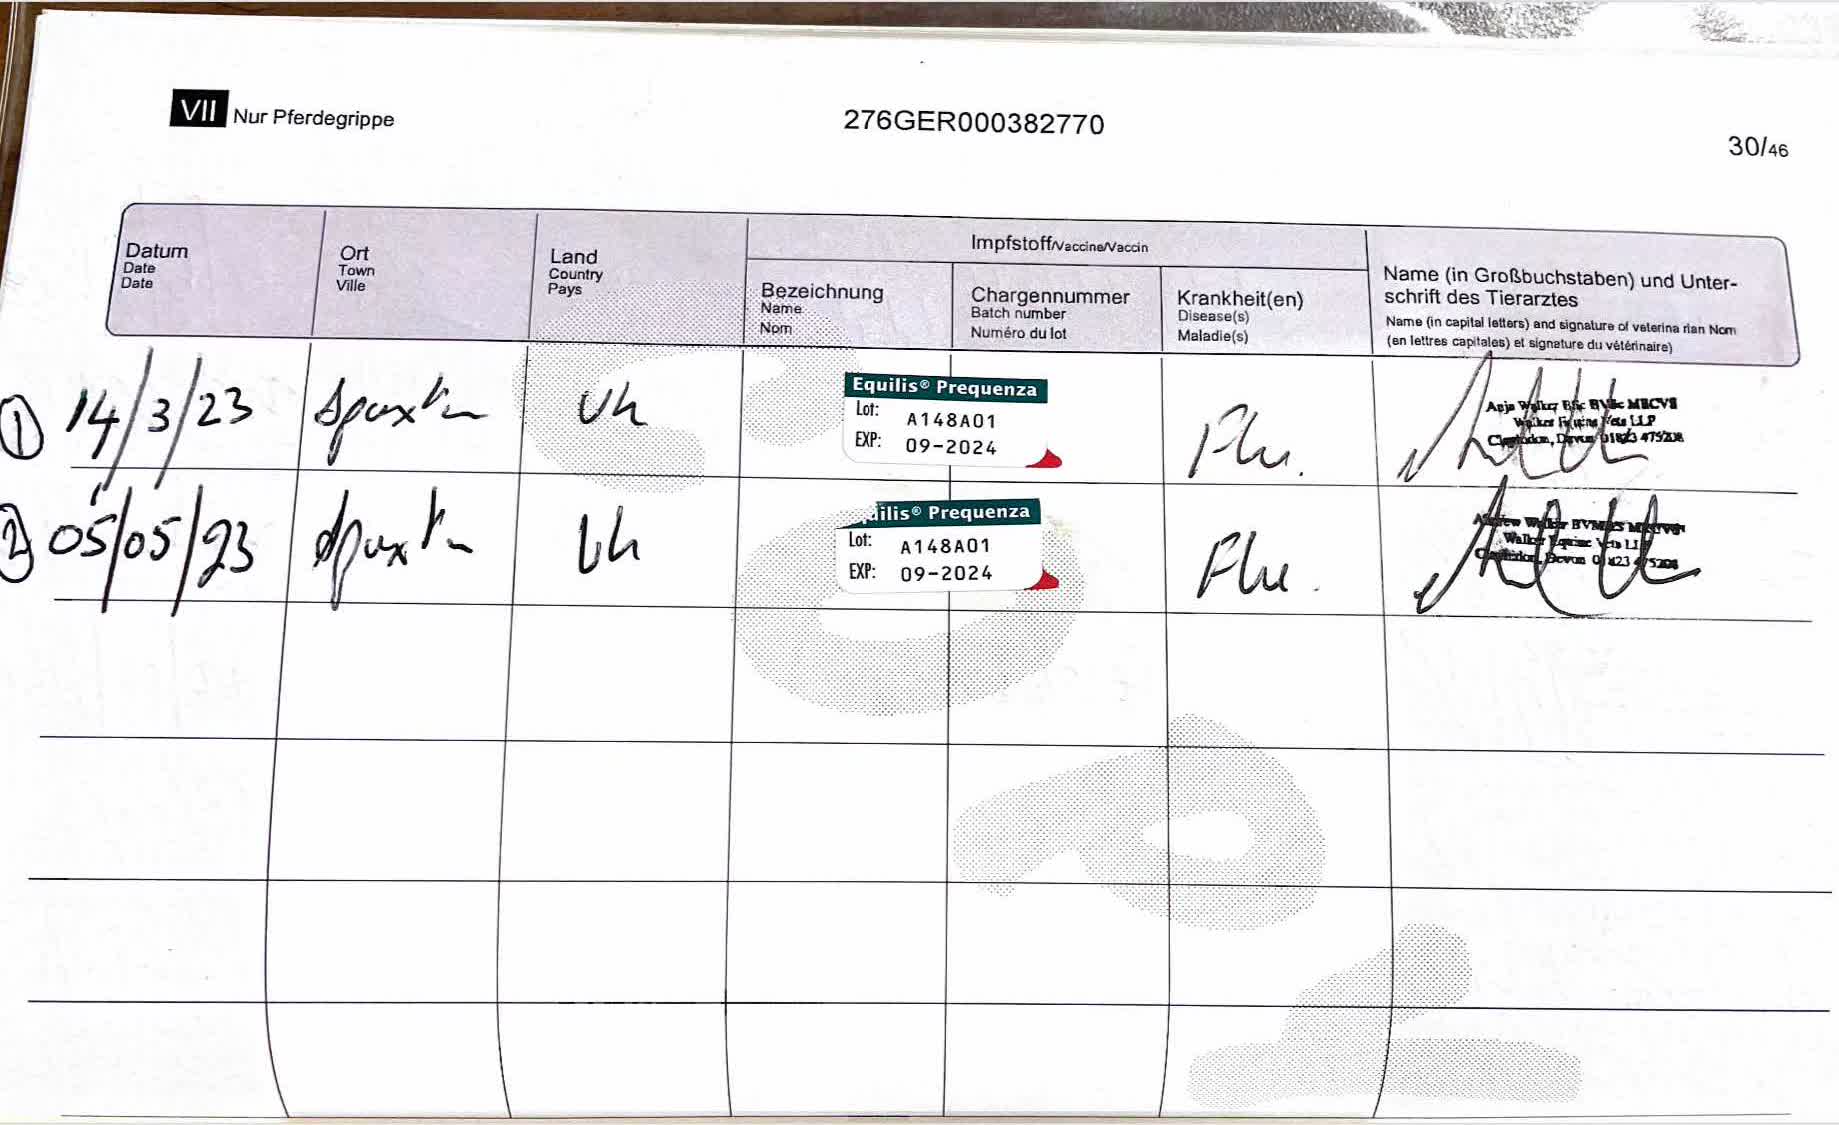 VII Nur Pferdegrippe
276GER000382770
30/46
Datum
Date
Date
Ort
Town
Ville
Land
Country
Pays
Impfstoff/Vaccine/Vaccin
Bezeichnung
Name
Nom
Chargennummer
Batch number
Numéro du lot
Krankheit(en)
Disease(s)
Maladie(s)
Name (in Großbuchstaben) und Unter-
schrift des Tierarztes
Name (in capital letters) and signature of veterina rian Nom
(en lettres capitales) et signature du vétérinaire)
1 14/3/23
Spaxton
Uk
Equilis® Prequenza
Lot: A148A01
EXP: 09-2024
Flu.
Anja Walker BSc BVSc MRCVS
Walker Equine Vets LLP
Devon 01823 475208
2 05/05/23
Spaxton
Uk
ilis® Prequenza
Lot: A148A01
EXP: 09-2024
Flu.
Andrew Walker BVM&S MRCVS
Walker Equine Vets LLP
Devon 01823 475208